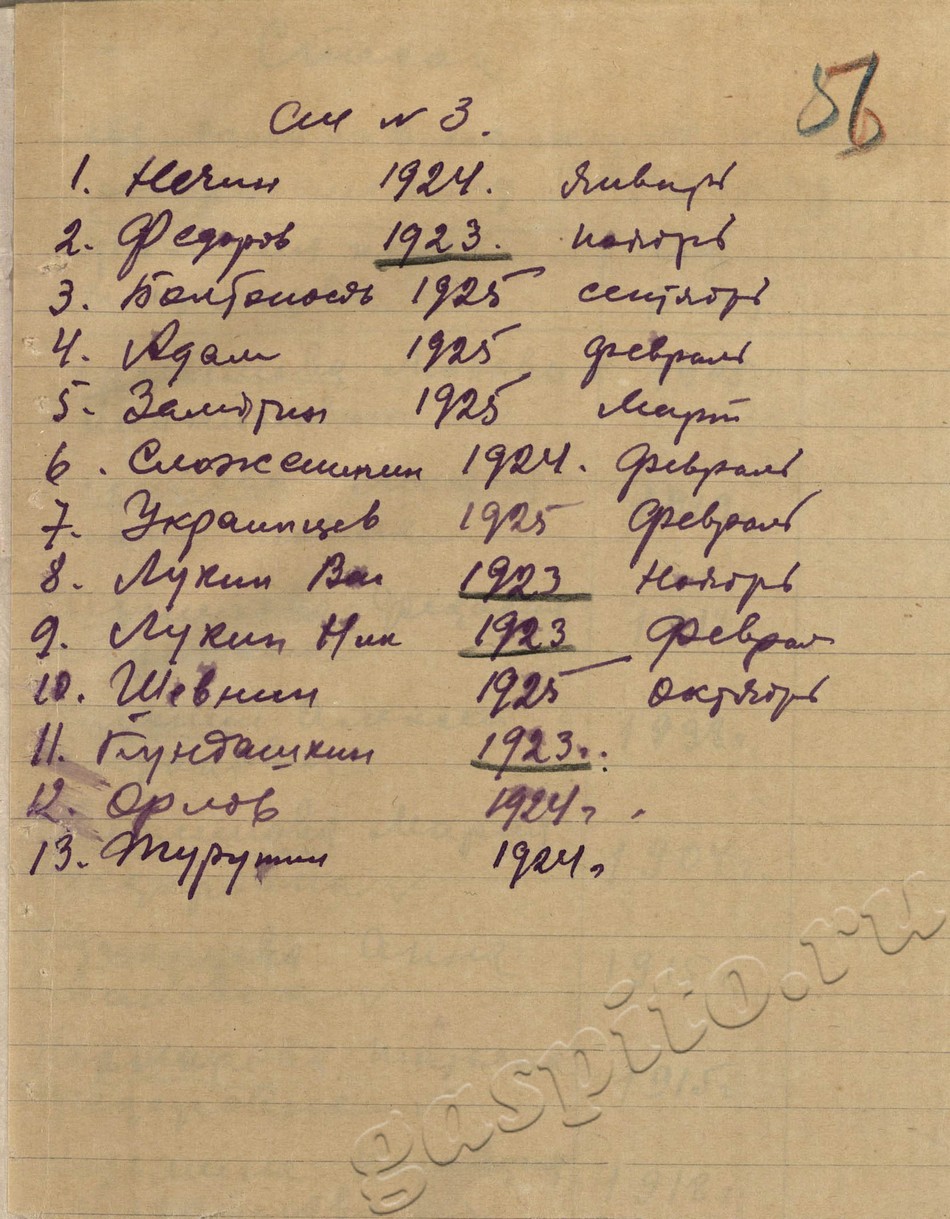 56
СМ № 3.
1. Нечин 1924. январь
2. Федоров 1923. ноябрь
3. 1925 сентябрь
4. Адам 1925 февраль
5. Замятин 1925 март
6. 1924. февраль
7. Украинцев 1925 февраль
8. Лукин Вас 1923 Ноябрь
9. Лукин Ник 1923 Феврал
10. Шевнин 1925 октябрь
11. 1923.
12. Орлов 1924г.
13. 1924г
gaspito.ru